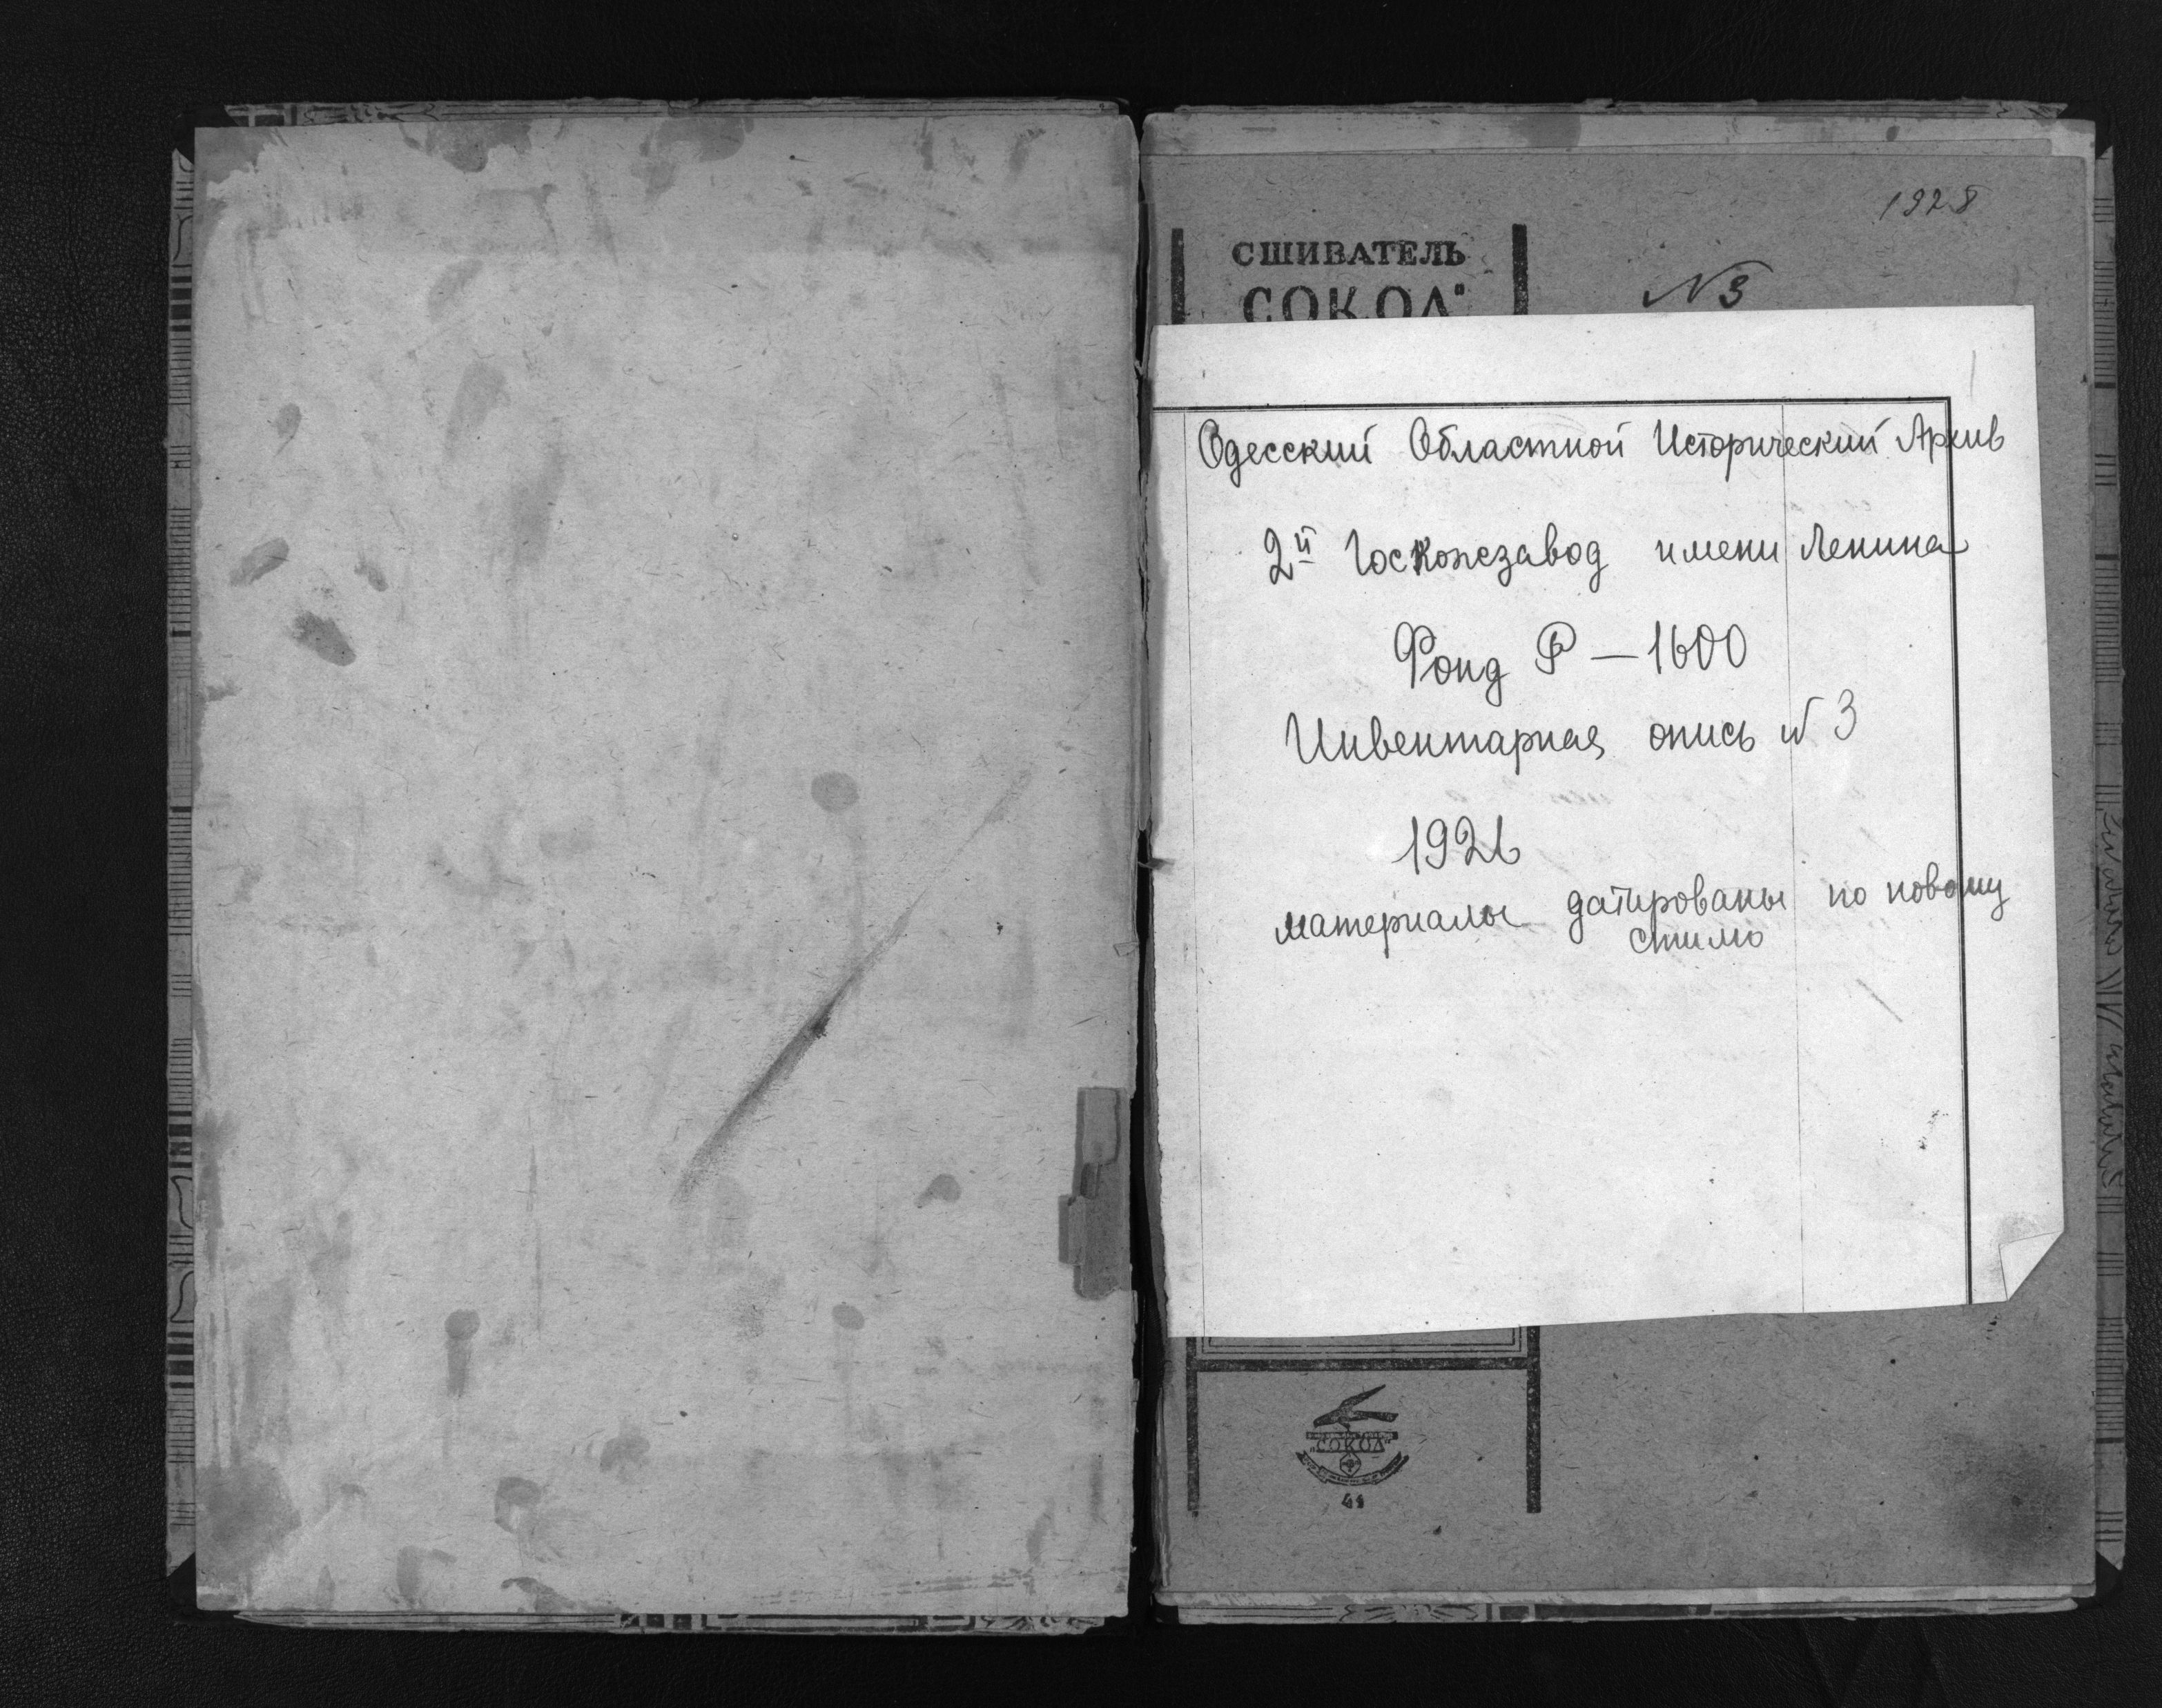 1928
СШИВАТЕЛЬ
СОКОЛ"
N 3
Одесский Областной Исторический Архив
2й Госкожзавод имени Ленина
Фонд Р — 1600
Инвентарная опись N 3
1926
материалы датированы по новому
стилю
„СОКОЛ"
41